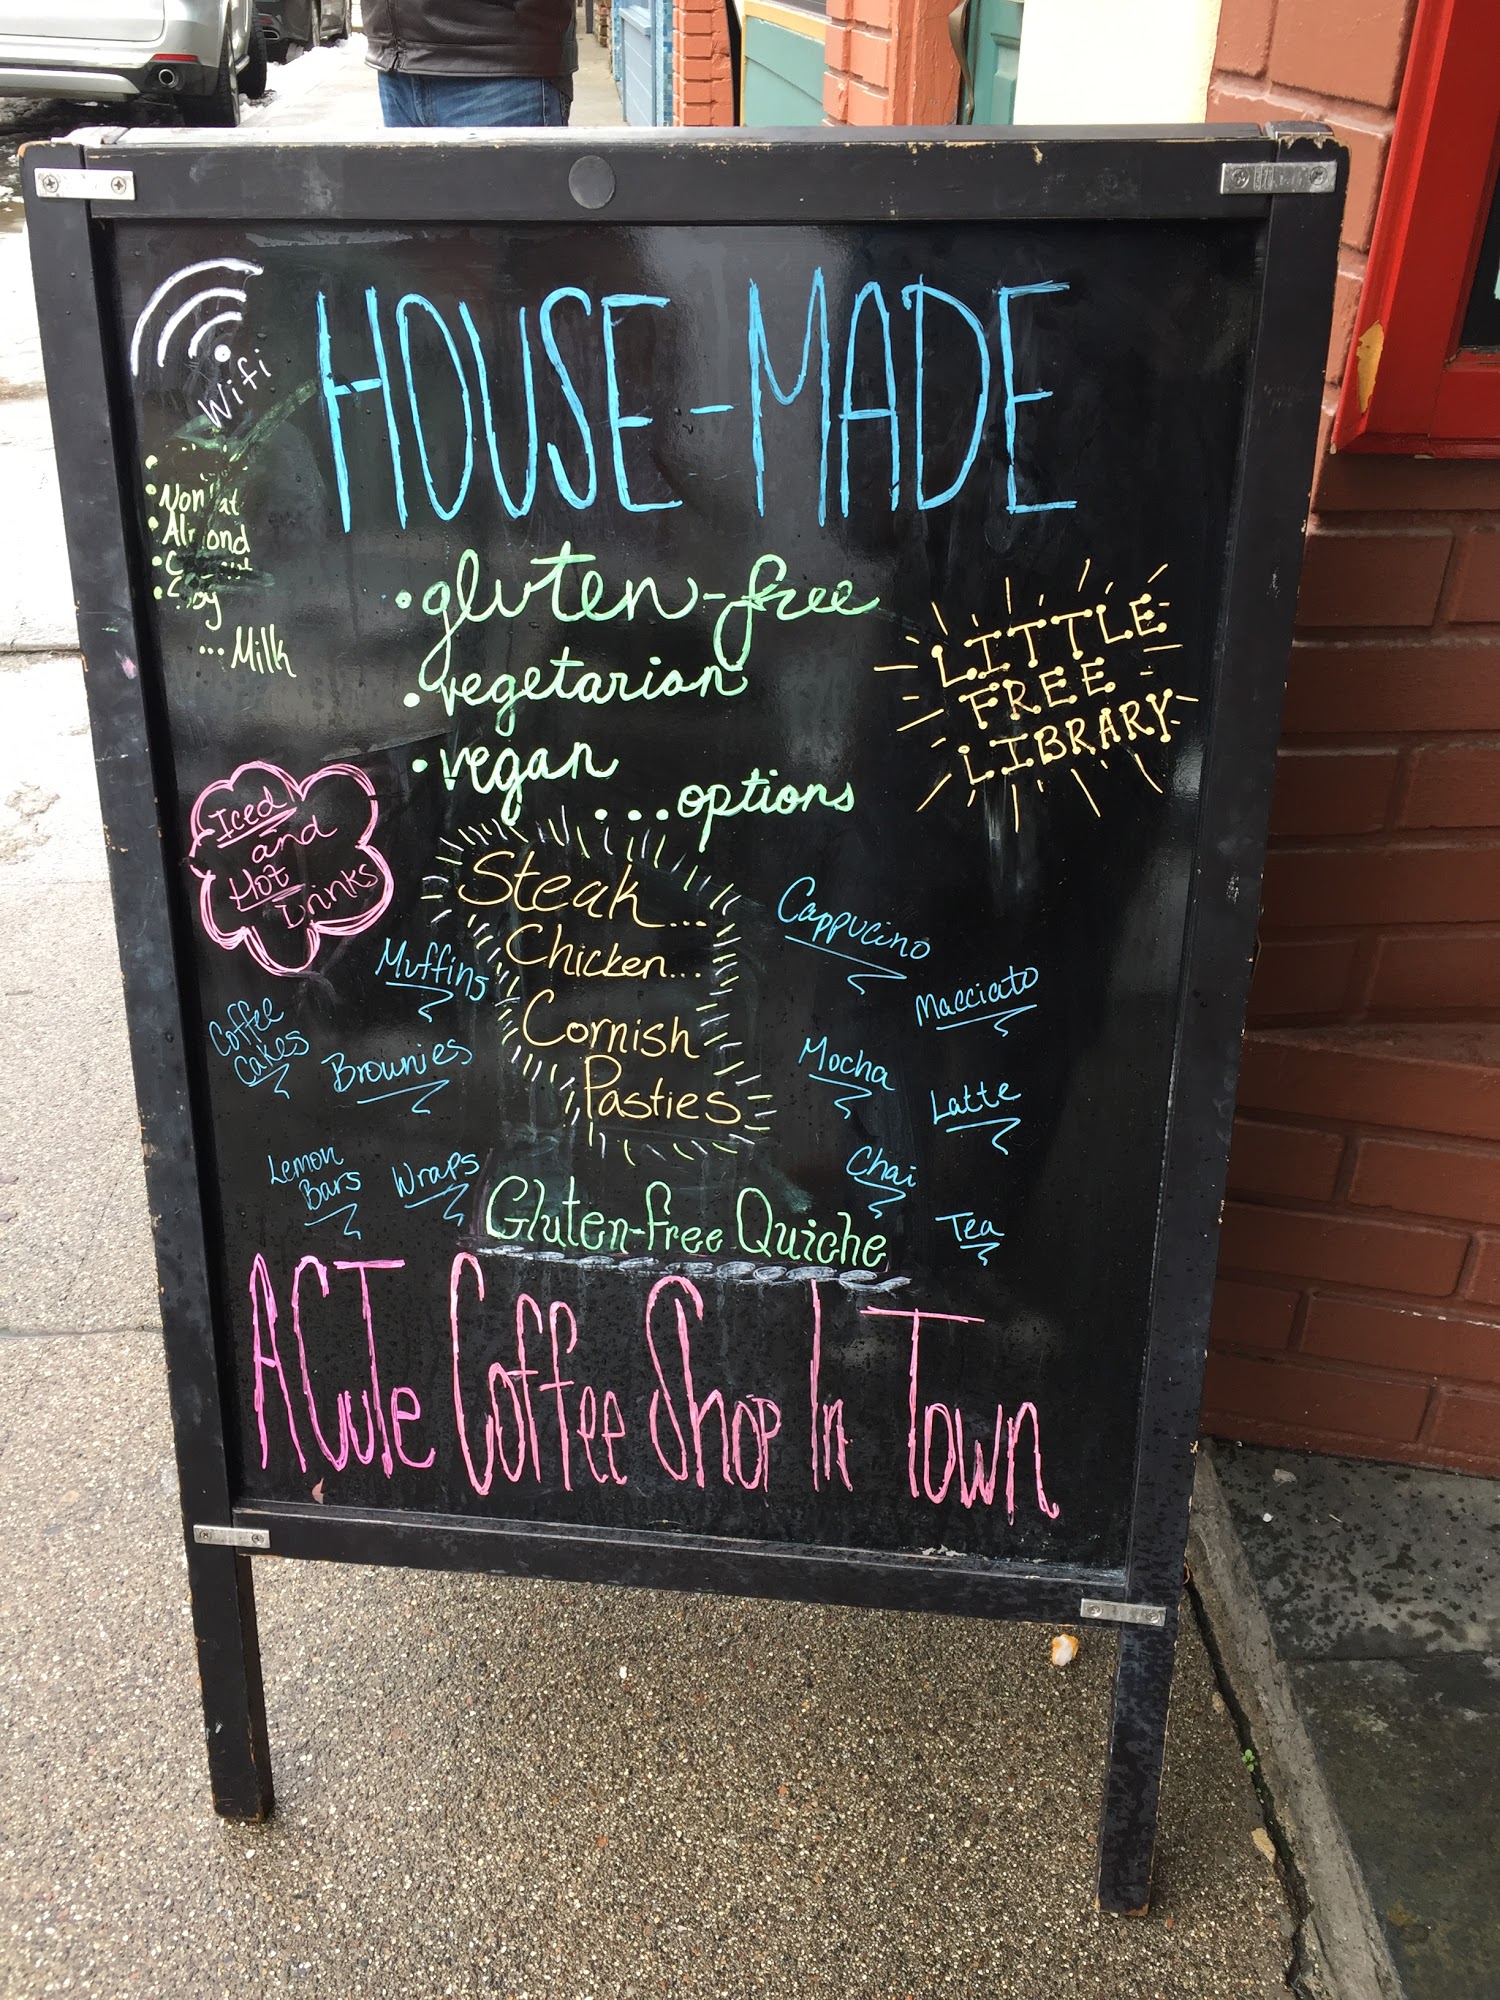 Wifi
HOUSE-MADE
Almond
... Milk
• gluten-free
• vegetarian
• vegan
... options
LITTLE
FREE
LIBRARY
Iced
and
Hot
Drinks
Steak...
Chicken...
Cornish
Pasties
Muffins
Coffee
Cakes
Brownies
Lemon
Bars
Wraps
Cappucino
Macciato
Mocha
Latte
Chai
Tea
Gluten-free Quiche
A CuTe Coffee Shop In Town